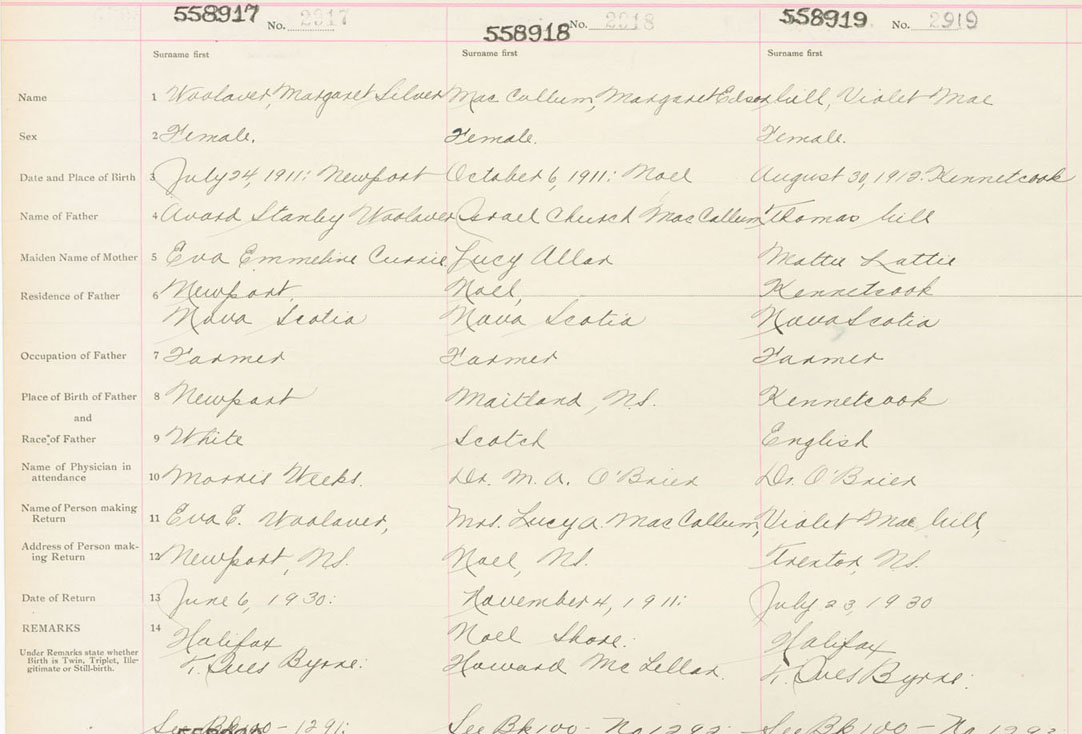 558917 No. 2917 558918 No. 2918 558919 No. 2919
Surname first Surname first Surname first
Name 1 Woolaver, Margaret Silver Mac Callum, Margaret Edson Hill, Violet Mae
Sex 2 Female. Female. Female.
Date and Place of Birth 3 July 24, 1911: Newport October 6, 1911: Noel August 30, 1912: Kennetcook
Name of Father 4 Avard Stanley Woolaver Israel Church MacCallum Thomas Hill
Maiden Name of Mother 5 Eva Emmeline Currie Lucy Allan Mattie Lattie
Residence of Father 6 Newport, Noel, Kennetcook
Nova Scotia Nova Scotia Nova Scotia
Occupation of Father 7 Farmer Farmer Farmer
Place of Birth of Father 8 Newport Maitland, N.S. Kennetcook
and
Race of Father 9 White Scotch English
Name of Physician in
attendance 10 Morris Weeks. Dr. M. A. O'Brien Dr. O'Brien
Name of Person making
Return 11 Eva E. Woolaver, Mrs. Lucy A MacCallum, Violet Mae Hill,
Address of Person mak-
ing Return 12 Newport, N.S. Noel, N.S. Trenton, N.S.
Date of Return 13 June 6, 1930: November 4, 1911: July 23, 1930
REMARKS 14 Halifax Noel Shore: Halifax
Under Remarks state whether
Birth is Twin, Triplet, Ille-
gitimate or Still-birth. Ives Byrne: Howard McLellan. Ives Byrne:
See Bk 100 - 1291: See Bk 100 - No 1292: See Bk 100 - No